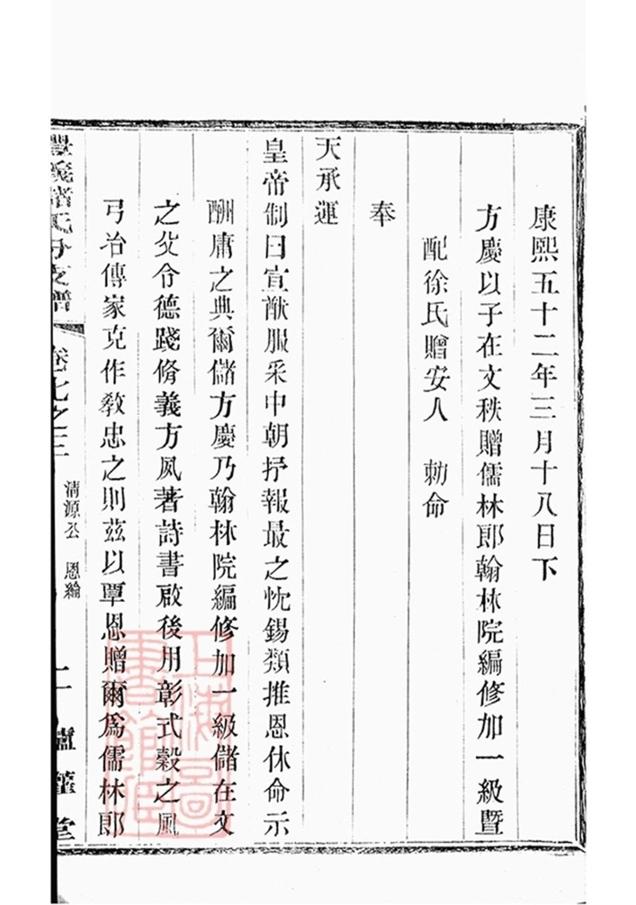 康熙五十二年三月十八日下
方慶以子在文秩贈儒林郎翰林院編修加一級暨
配徐氏贈安人 勅命
奉
天承運
皇帝制曰宣猷服采中朝抒報最之忱錫類推恩休命示
酬庸之典爾儲方慶乃翰林院編修加一級儲在文
之父令德踐脩義方夙著詩書啟後用彰式穀之風
弓冶傳家克作教忠之則茲以覃恩贈爾為儒林郎
豐義儲氏分支譜
卷七之三
清源公 恩綸
二
堂